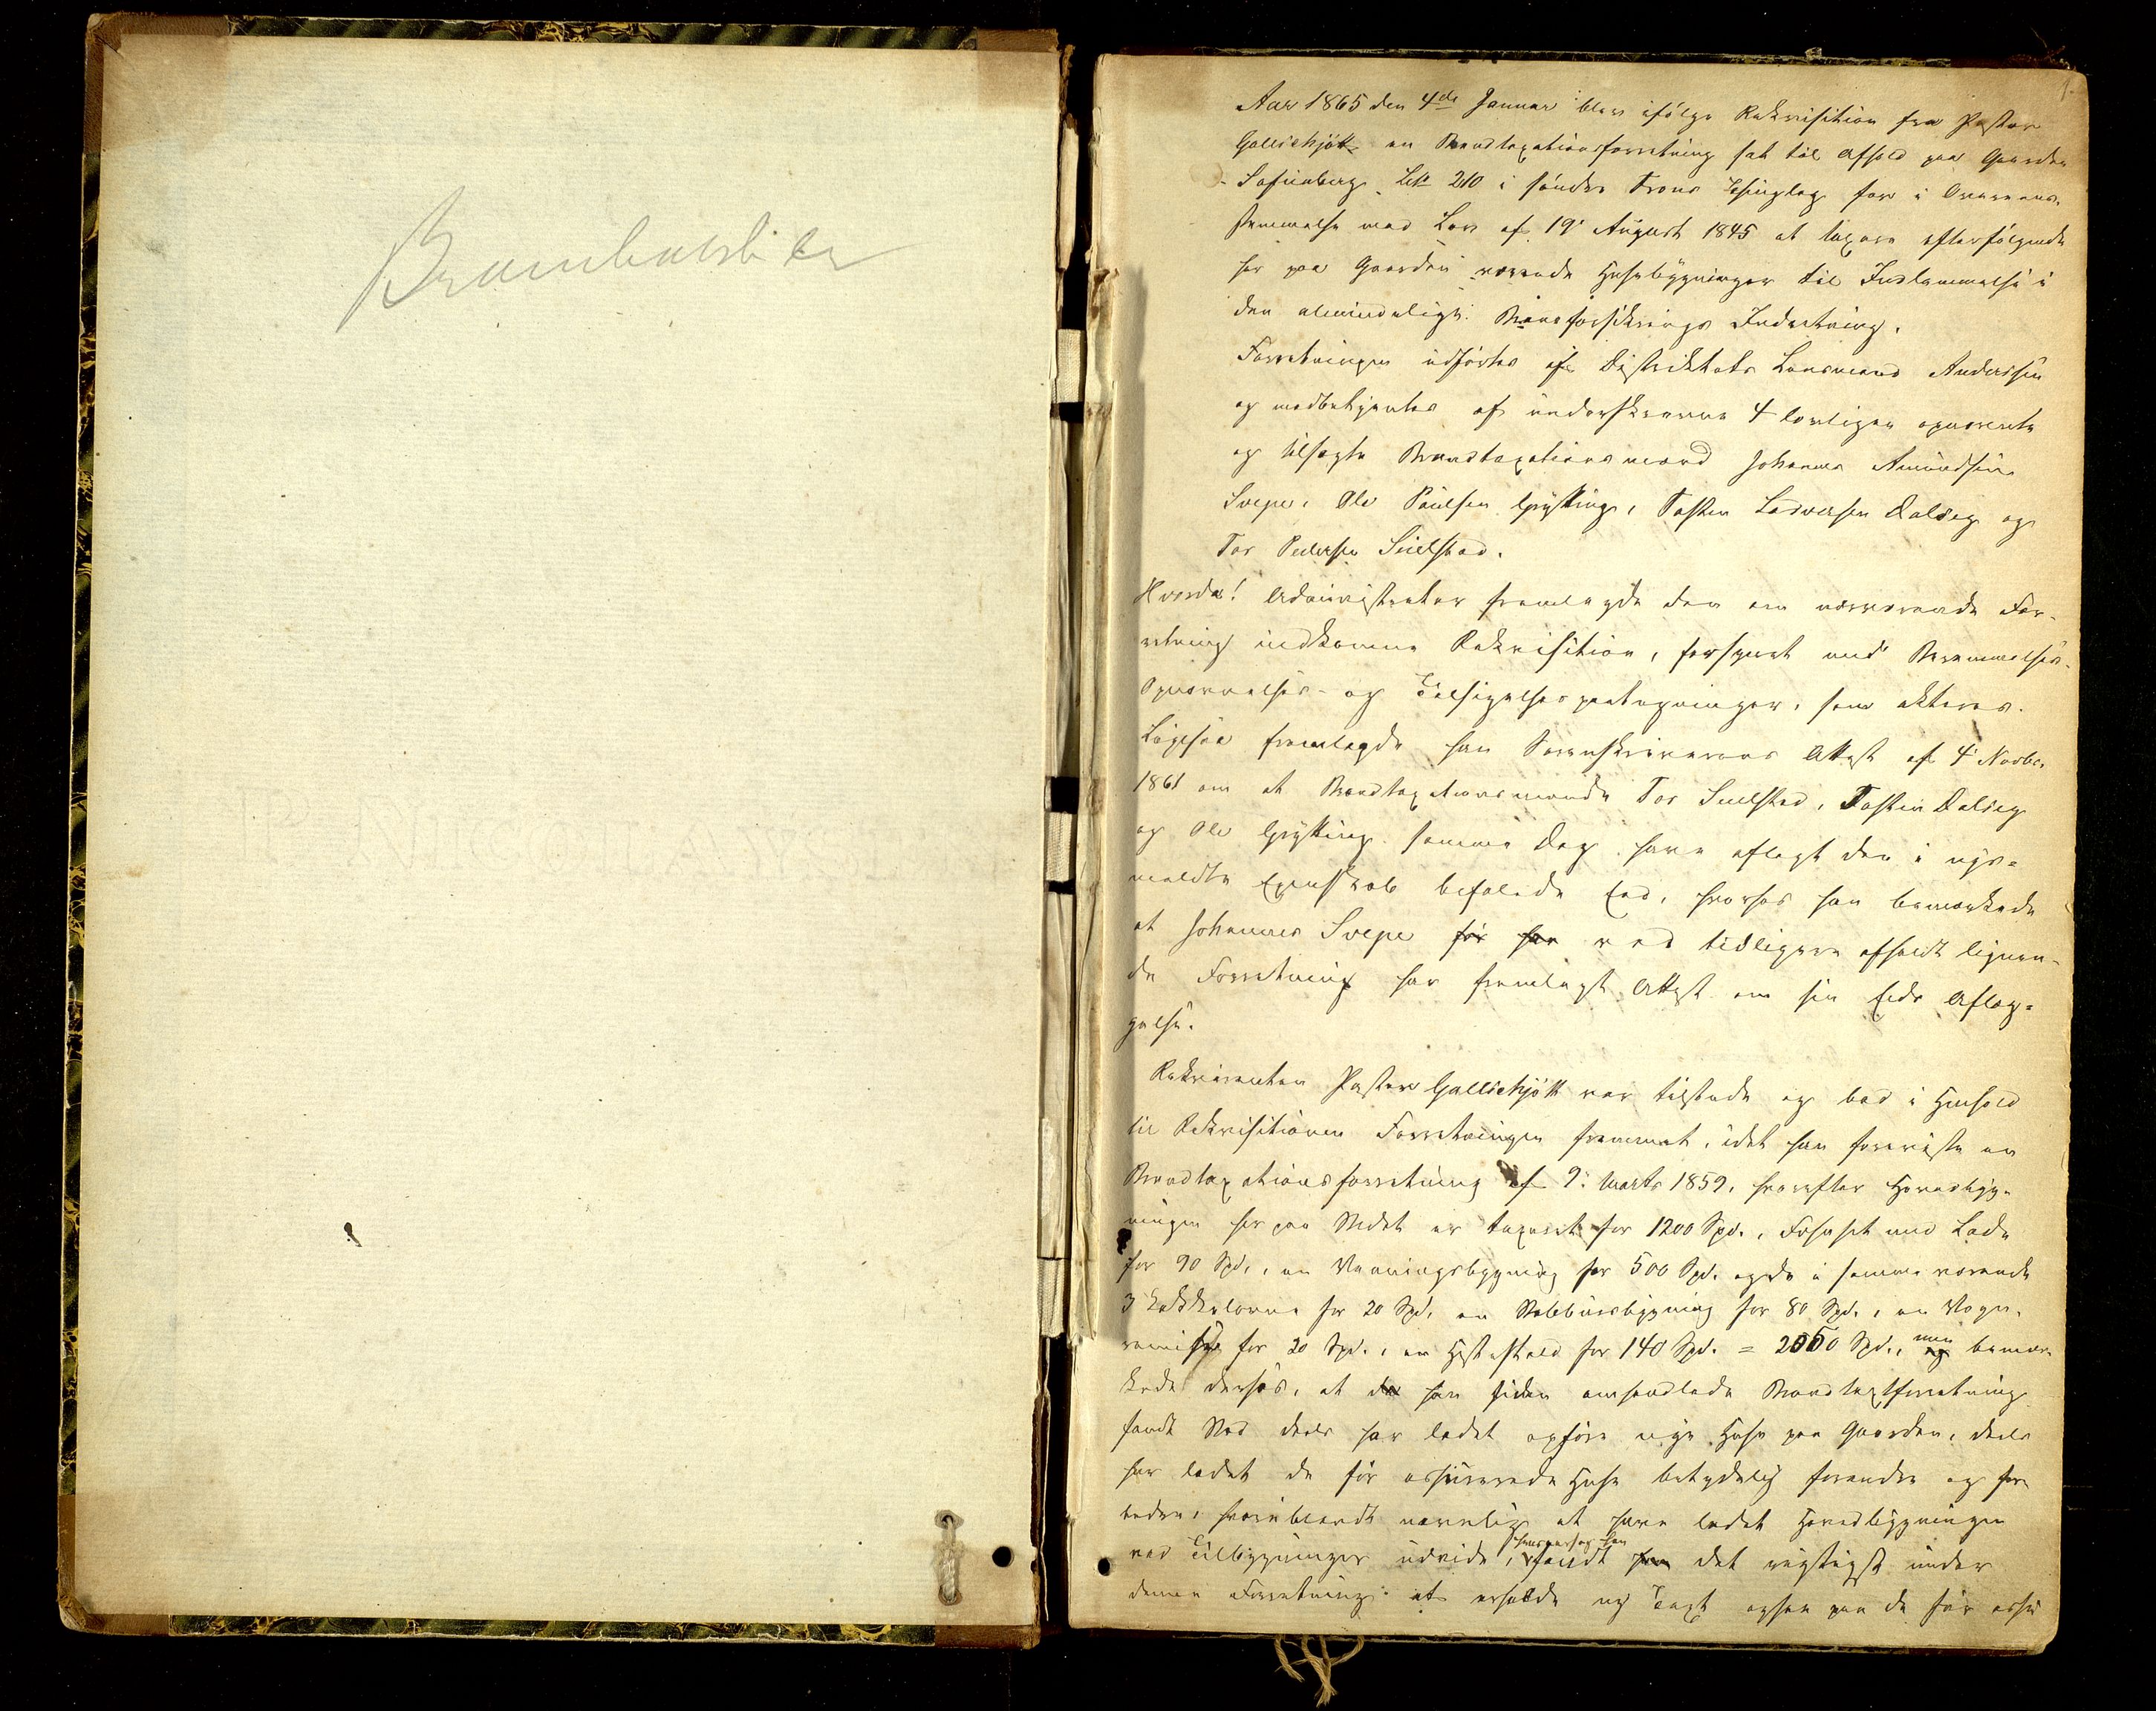 Aar 1865 den 4de Januar blev ifølge Rekvisition fra Pastor
Gallschjøtt en Brandtaxationsforretning sat til Afhold paa Gaarden
Sofienberg L№ 210 i søndre Frons Thinglag for i Overeens-
stemmelse med Lov af 19' August 1845 at taxere efterfølgende
her paa Gaarden værende Husebygninger til Indlemmelse i
den almindelige Brandforsikrings Indretning.
Forretningen udførtes af Distriktets Lensmand Anderssen
og medbetjentes af underskrevne 4 lovligen opnævnte
og tilsagte Brandtaxationsmænd Johannes Amundsen
Svepe, Ole Paulsen Grytting, Tosten Ledversen Dalseg og
Tor Pedersen Suelstad.
Hvorda! Administrator fremlagde den om nærværende For-
retning indkomne Rekvisition, forsynet med Berammelses-
Opnævnelses- og Tilsigelsespaategninger, som akteres.
Ligesaa fremlagde han Sorenskriverens Attest af 4' Novbr.
1861 om at Brandtaxationsmændene Tor Suelstad, Tosten Dalseg
og Ole Grytting samme Dag have aflagt den i nys-
meldte Egenskab befalede Eed, hvorhos han bemærkede
at Johannes Svepe før har ved tidligere afholdt lignen-
de Forretning har fremlagt Attest om sin Eeds Aflæg-
gelse.
Rekvirenten Pastor Gallschjøtt var tilstede og bad i Henhold
til Rekvisitionen Forretningen fremmet, idet han foreviste en
Brandtaxationsforretning af 9' Marts 1859, hvorefter Hovedbyg-
ningen her paa Stedet er taxeret for 1200 Spd., Fæhuset med Lade
for 90 Spd., en Vaaningsbygning for 500 Spd. og de i samme værende
3 Kakkelovne for 20 Spd. en Stabbursbygning for 80 Spd., en Vogn-
remisse for 20 Spd., en Hestestald for 140 Spd. = 2050 Spd., og men bemær-
kede derhos, at da han siden omhandlede Brandtaxtforretning
fandt Sted deels har ladet opføre nye Huse paa Gaarden, deels
har ladet de før assurerede Huse betydelig forandre og for-
bedre, hvoriblandt navnlig at have ladet Hovedbygningen
ved Tilbygninger udvide, hvorfor han fandt han det rigtigst under
denne Forretning at erholde ny Taxt ogsaa paa de før assu